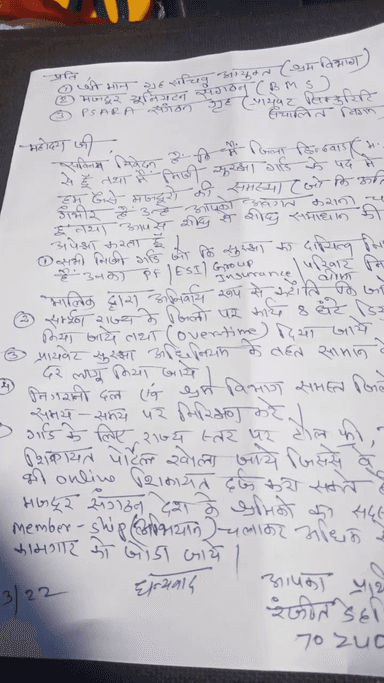 प्रति
① श्री मान गृह सचिव, आयुक्त (श्रम विभाग)
② मजदूर यूनियन संगठन (B M S)
③ PSARA संगठन गृह (प्रायवेट सिक्युरिटि
संचालित
महोदय जी
सविनय निवेदन है कि मैं जिला छिन्दवाड़ा (म.
से हूँ तथा मैं निजी सुरक्षा गार्ड के पद में
हम जैसे मजदूरो की समस्या (जो कि
गंभीर है उन्हें आपको अवगत कराना
हूँ तथा आपसे शीघ्र से शीघ्र समाधान की
अपेक्षा करता हूँ
① सभी निजी गार्ड जो कि सुरक्षा का दायित्व
हैं उनका PF / ESI / Group Insurance / परिवार
मालिक द्वारा अनिवार्य रूप से
② समस्त राज्य के जिलो पर मात्र 8 घंटे
किया जाये तथा (over-time) दिया जाये
③ प्रायवेट सुरक्षा अधिनियम के तहत समान
दर लागू किया जाये |
④ निगरानी दल एवं श्रम विभाग समस्त
समय-समय पर निरिक्षण करे |
गार्ड के लिए राज्य स्तर पर टोल फ्री,
शिकायत पोर्टल खोला जाये जिससे
की online शिकायत दर्ज करा सकते
मजदूर संगठन देश के श्रमिको का
member-ship (अभियान) चलाकर अधिक
कामगार को जोडा जाये |
धन्यवाद
3/22
आपका
रंजीत
70240